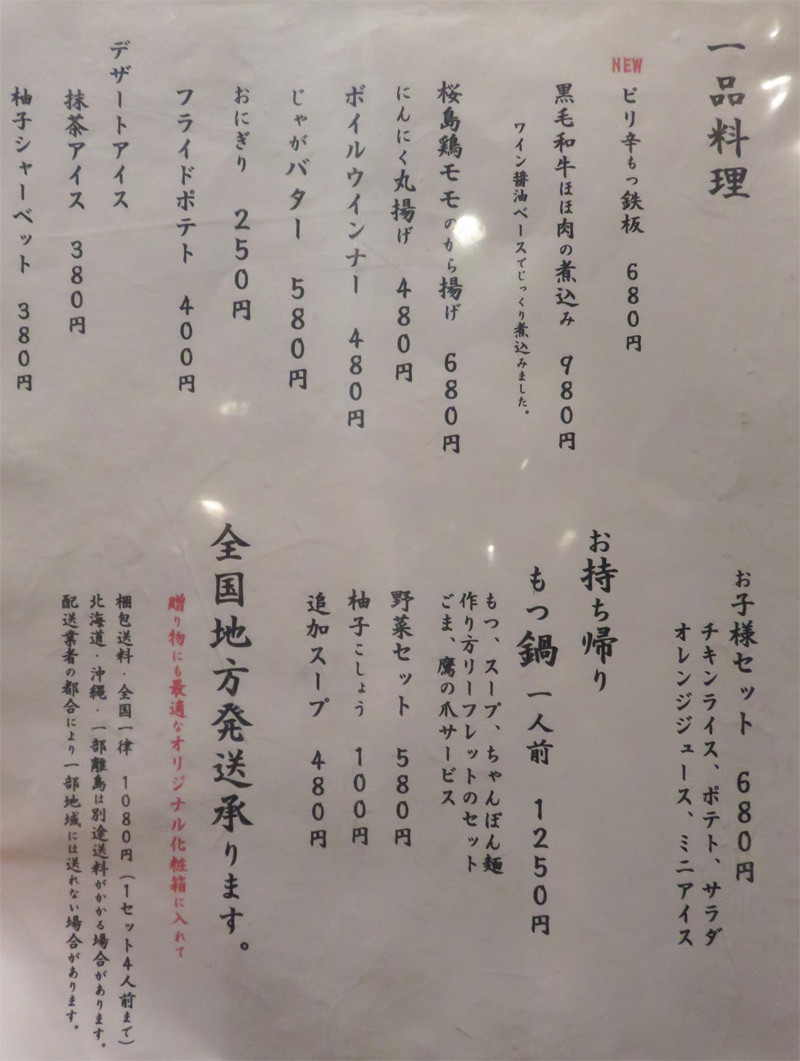 一品料理
NEW
ピリ辛もつ鉄板 680円
黒毛和牛ほほ肉の煮込み 980円
ワイン醤油ベースでじっくり煮込みました。
桜島鶏モモのから揚げ 680円
にんにく丸揚げ 480円
ボイルウインナー 480円
じゃがバター 580円
おにぎり 250円
フライドポテト 400円
デザートアイス
抹茶アイス 380円
柚子シャーベット 380円
お子様セット 680円
チキンライス、ポテト、サラダ
オレンジジュース、ミニアイス
お持ち帰り
もつ鍋 一人前 1250円
もつ、スープ、ちゃんぽん麺
作り方リーフレットのセット
ごま、鷹の爪サービス
野菜セット 580円
柚子こしょう 100円
追加スープ 480円
全国地方発送承ります。
贈り物にも最適なオリジナル化粧箱に入れて
梱包送料・全国一律 1080円(1セット4人前まで)
北海道・沖縄・一部離島は別途送料がかかる場合があります。
配送業者の都合により一部地域には送れない場合があります。